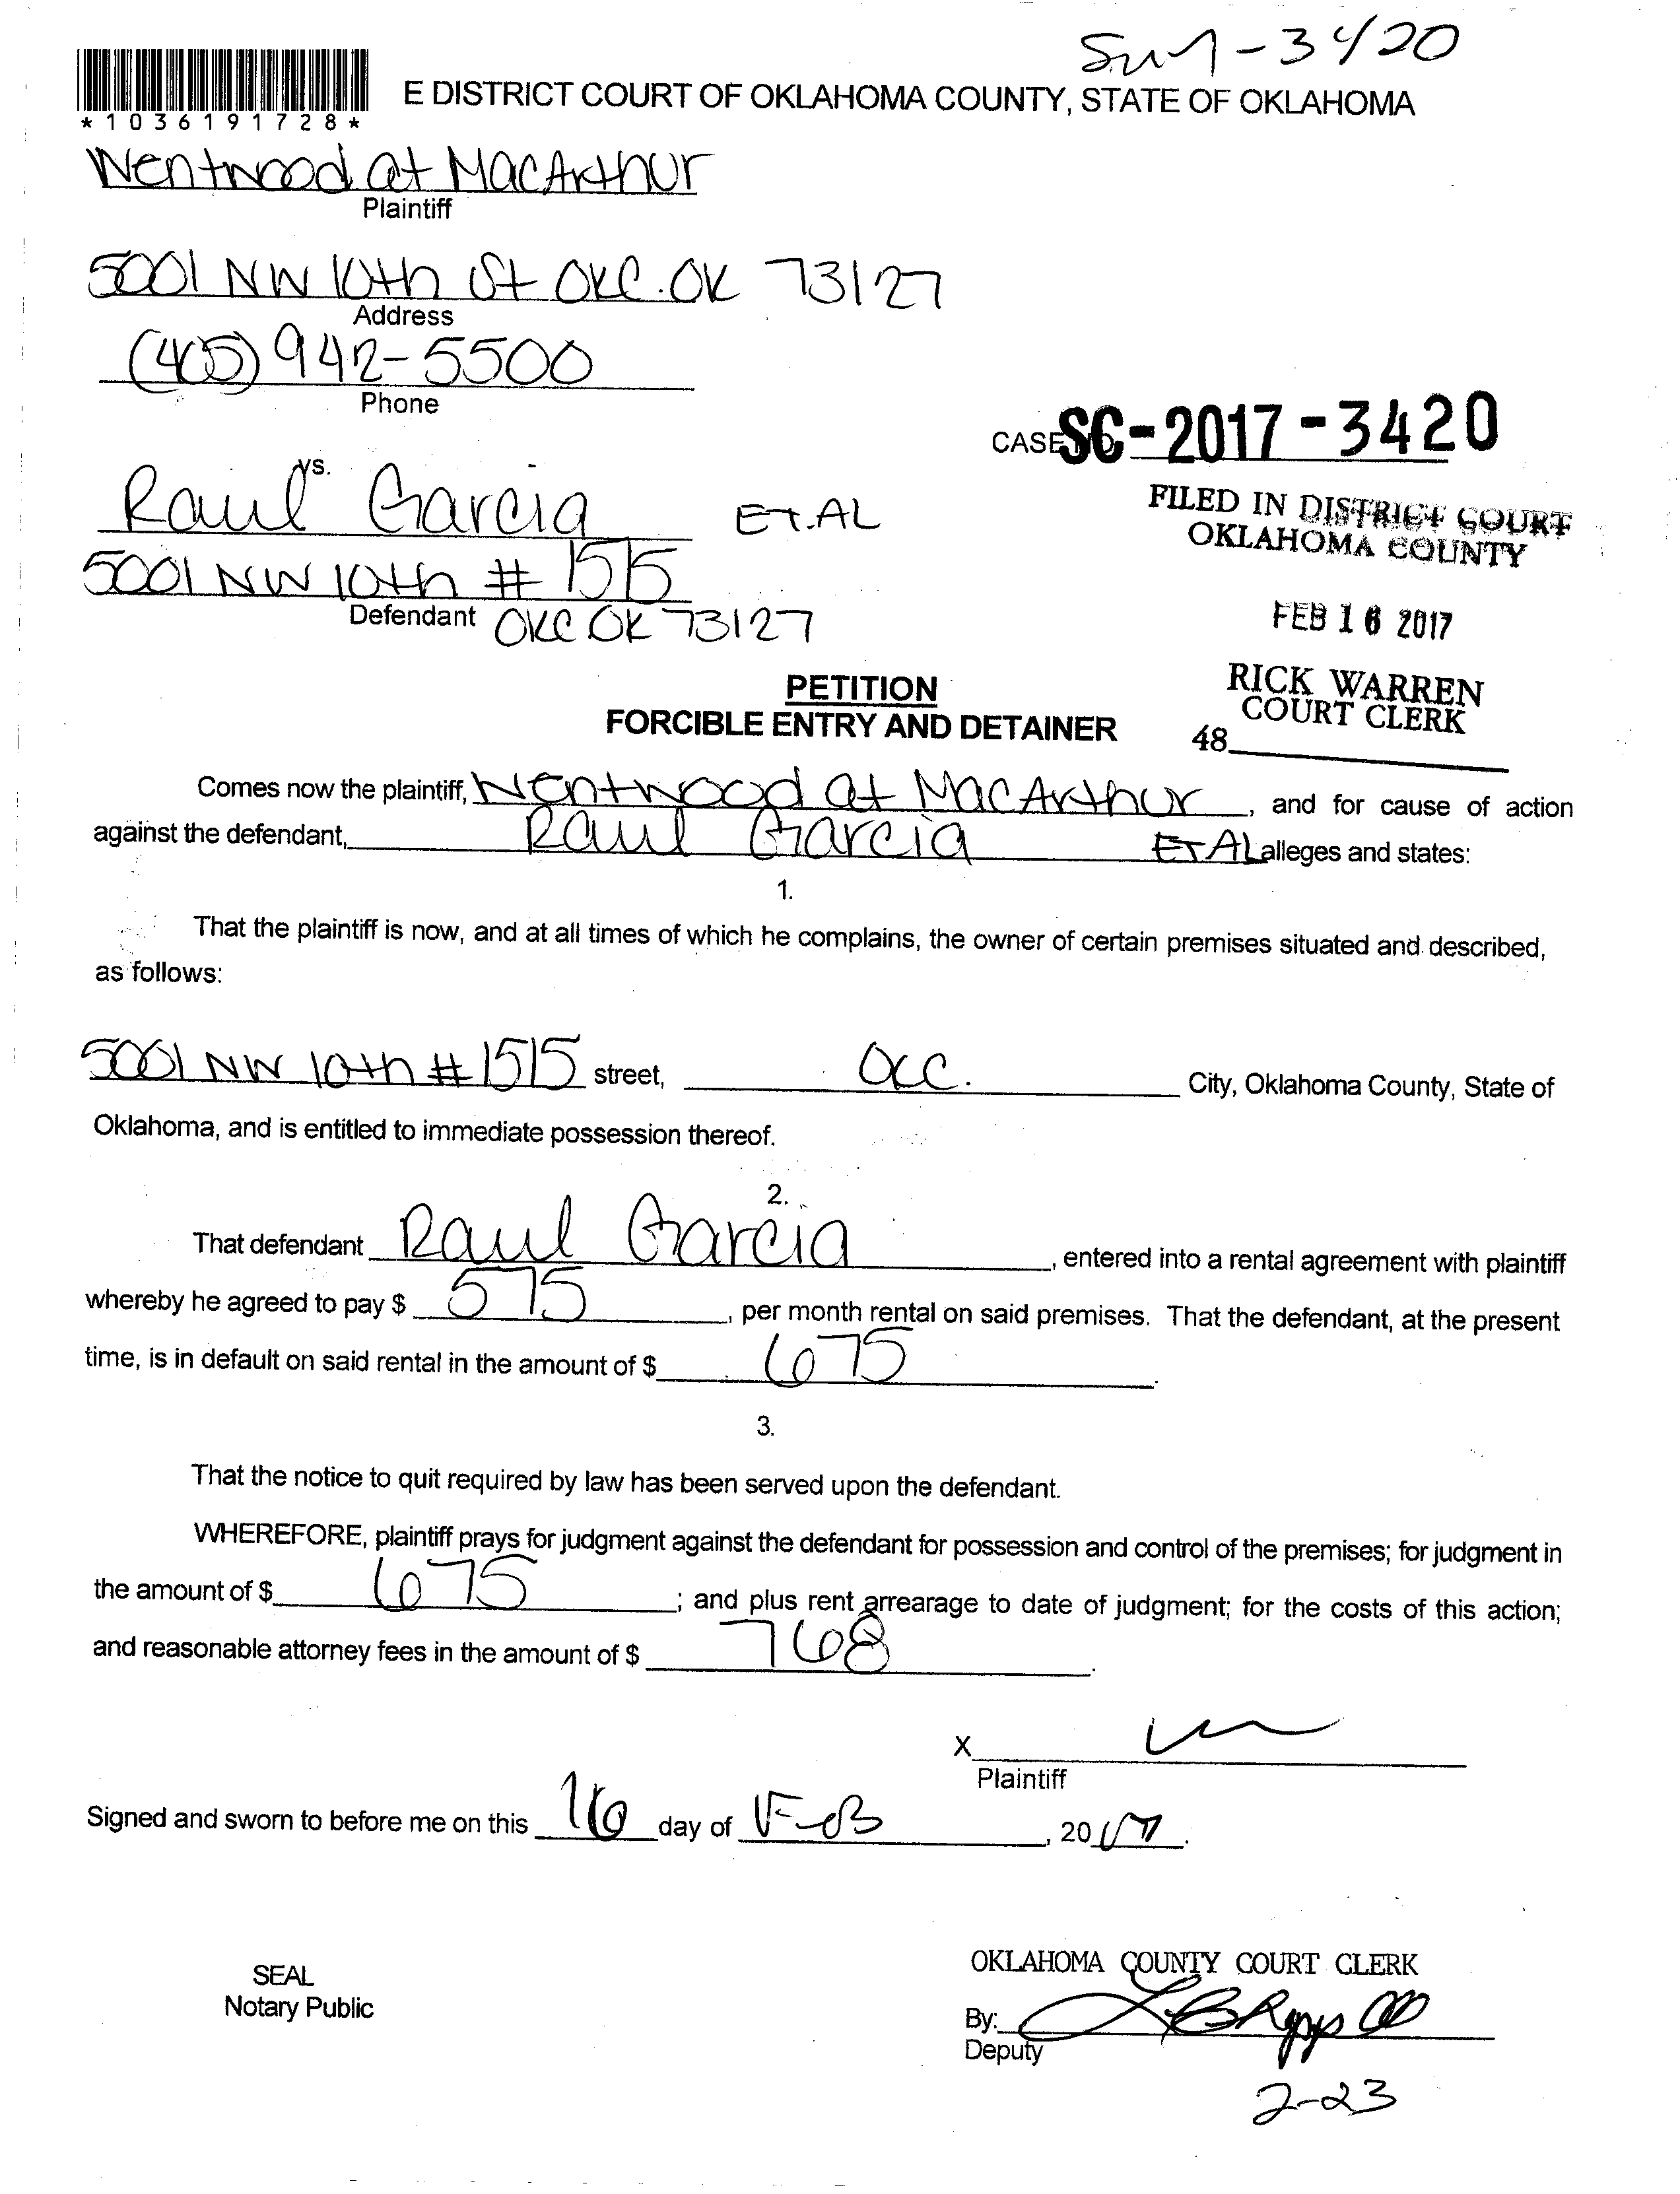 -3420
E DISTRICT COURT OF OKLAHOMA COUNTY, STATE OF OKLAHOMA
*1036191728*
Wentwood at MacArthur
Plaintiff
5001 NW 10th St OKC. OK 73127
Address
(405) 942-5500
Phone
CASE SC-2017-3420
vs.
Raul Garcia ET.AL
FILED IN DISTRICT COURT
OKLAHOMA COUNTY
5001 NW 10th # 1515
Defendant OKC OK 73127
FEB 16 2017
PETITION
RICK WARREN
COURT CLERK
FORCIBLE ENTRY AND DETAINER
48
Comes now the plaintiff, Wentwood at MacArthur, and for cause of action
against the defendant, Raul Garcia ET AL alleges and states:
1.
That the plaintiff is now, and at all times of which he complains, the owner of certain premises situated and described,
as follows:
5001 NW 10th # 1515 street, OKC. City, Oklahoma County, State of
Oklahoma, and is entitled to immediate possession thereof.
2.
That defendant Raul Garcia, entered into a rental agreement with plaintiff
whereby he agreed to pay $ 575, per month rental on said premises. That the defendant, at the present
time, is in default on said rental in the amount of $ 675.
3.
That the notice to quit required by law has been served upon the defendant.
WHEREFORE, plaintiff prays for judgment against the defendant for possession and control of the premises; for judgment in
the amount of $ 675; and plus rent arrearage to date of judgment; for the costs of this action;
and reasonable attorney fees in the amount of $ 768.
X
Plaintiff
Signed and sworn to before me on this 16 day of FEB, 2017.
SEAL
Notary Public
OKLAHOMA COUNTY COURT CLERK
By:
Deputy
2-23